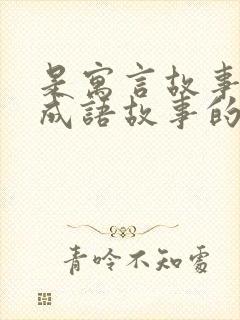 是寓言故事
成語故事的
青呤不知處